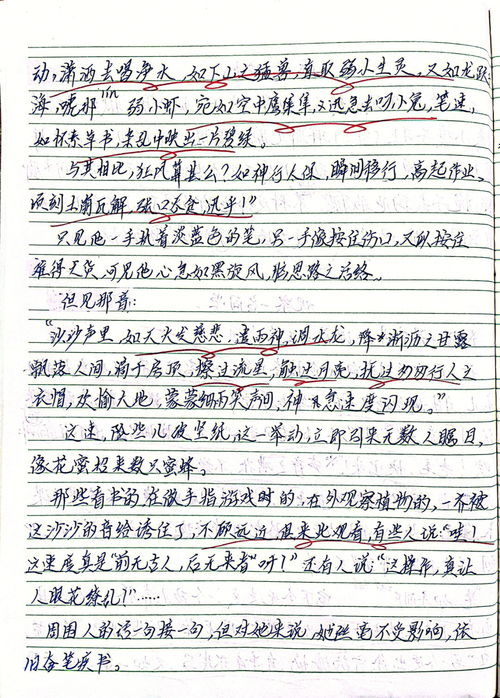 动,潇洒去喝净水,如下山之猛兽,夺取弱小生灵,又如龙跃
海,唬那弱小虾,宛如空中鹰隼,又迅急去叼小兔,笔速,
如怀素草书,杂乱中映出一片碧绿。
与其相比,狂风算甚么?如神行人保,瞬间移行,高起作业、
顷刻土崩瓦解,张口欲食,迅乎!"
只见他一手执着淡蓝色的笔,另一手像按住伤口,又似按住
难得之货,可见他心急如黑旋风,临思路之活络。
但见那音:
"沙沙声里,如天大发慈悲,遣雨神,调水龙,降些淅沥之甘露
飘落人间,滴于房顶,擦过流星,触过月亮,抚过匆匆行人之
衣帽,欢愉大地,蒙蒙细雨笑声间,神飞急速度闪现。"
这速,险些儿破坚纸,这一举动,立即引来无数人瞩目,
像花蜜招来数只蜜蜂。
那些看书的,在做手指游戏时的,在外观察植物的,一齐被
这沙沙的音给诱住了,不顾远近,但来此观看,有些人说:"哇!
这速度真是"前无古人,后无来者"呀!"还有人说:"这操作,真让
人眼花缭乱!"……
周围人的话一句接一句,但对她来说,她丝毫不受影响,依
旧奋笔疾书。